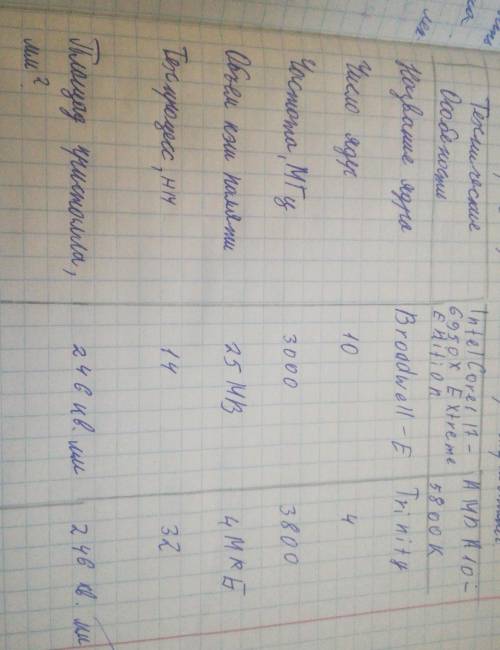 Технические
Особености
Intel Core i7-
6950X Extreme
Edition
AMD A10-
5800K
Название ядра
Broadwell-E
Trinity
Число ядр
10
4
Частота, МГц
3000
3800
Объем кэш памяти
25 MB
4 МКБ
Техпроцесс, нм
14
32
Площад кристолла,
мм²
246 кв. мм
246 кв. мм